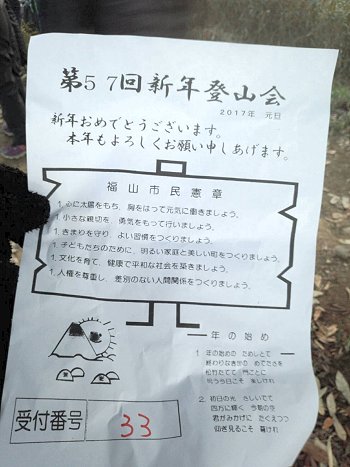 第57回新年登山会
2017年 元日
新年おめでとうございます。
本年もよろしくお願い申しあげます。
福山市民憲章
1. 心に太陽をもち、胸をはって元気に働きましょう。
1. 小さな親切を 勇気をもって行いましょう。
1. きまりを守り よい習慣をつくりましょう。
1. 子どもたちのために、明るい家庭と美しい町をつくりましょう。
1. 文化を育て、健康で平和な社会を築きましょう。
1. 人権を尊重し、差別のない人間関係をつくりましょう。
一年の始め
1. 年の始めの ためしとて
終わりなき世の めでたさを
松竹たてて 門ごとに
祝う今日こそ 楽しけれ
2. 初日の光 さしいでて
四方に輝く 今朝の空
君がみかげに たぐえつつ
仰ぎ見るこそ 尊けれ
受付番号 33